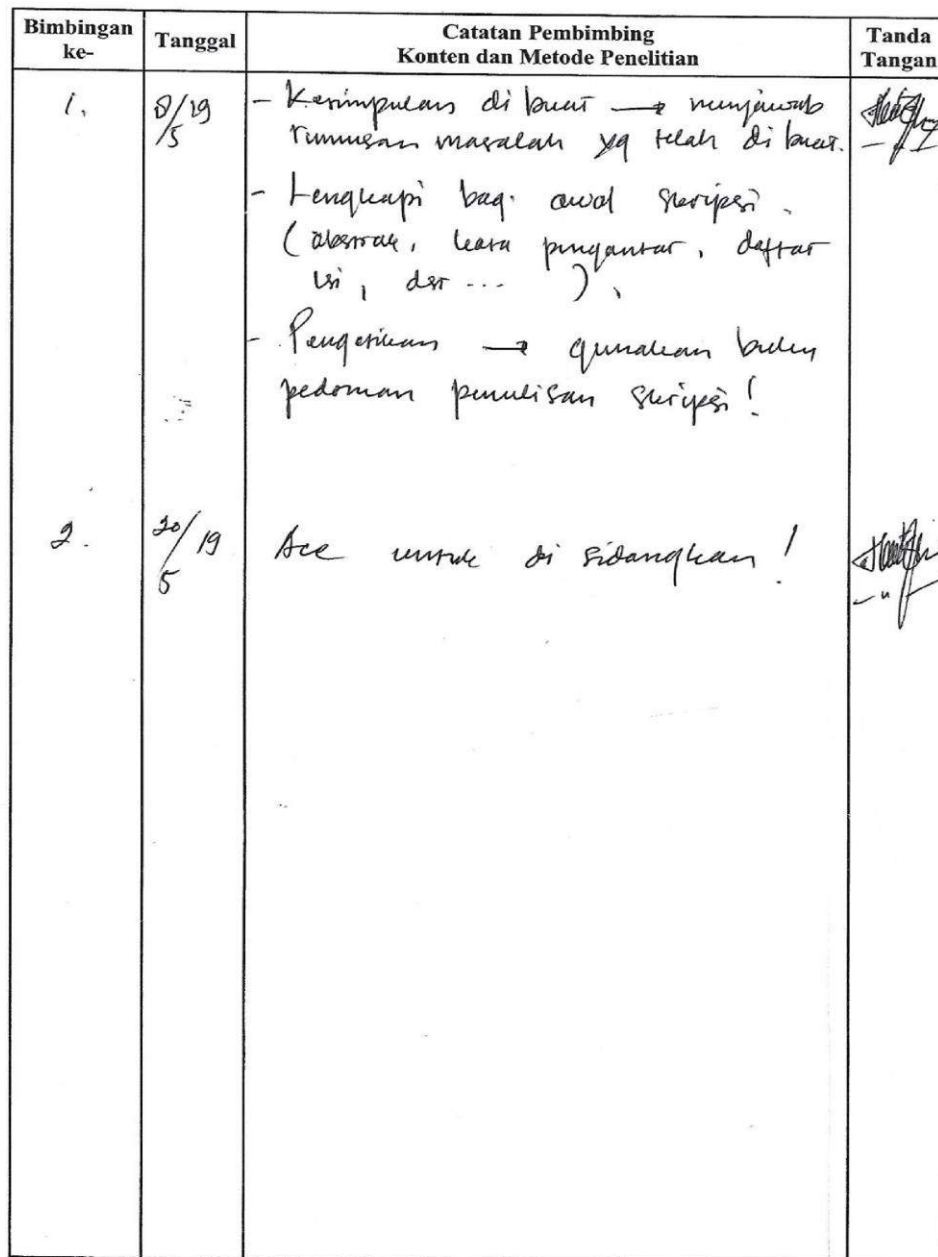 Bimbingan ke-
Tanggal
Catatan Pembimbing
Konten dan Metode Penelitian
Tanda Tangan
1.
8/5 19
- Kesimpulan di buat → menjawab
rumusan masalah yg telah di buat.
- Lengkapi bag. awal skripsi.
(abstrak, kata pengantar, daftar
isi, dst ... ).
- Pengetikan → gunakan buku
pedoman penulisan skripsi!
2.
20/5 19
Acc untuk di sidangkan!